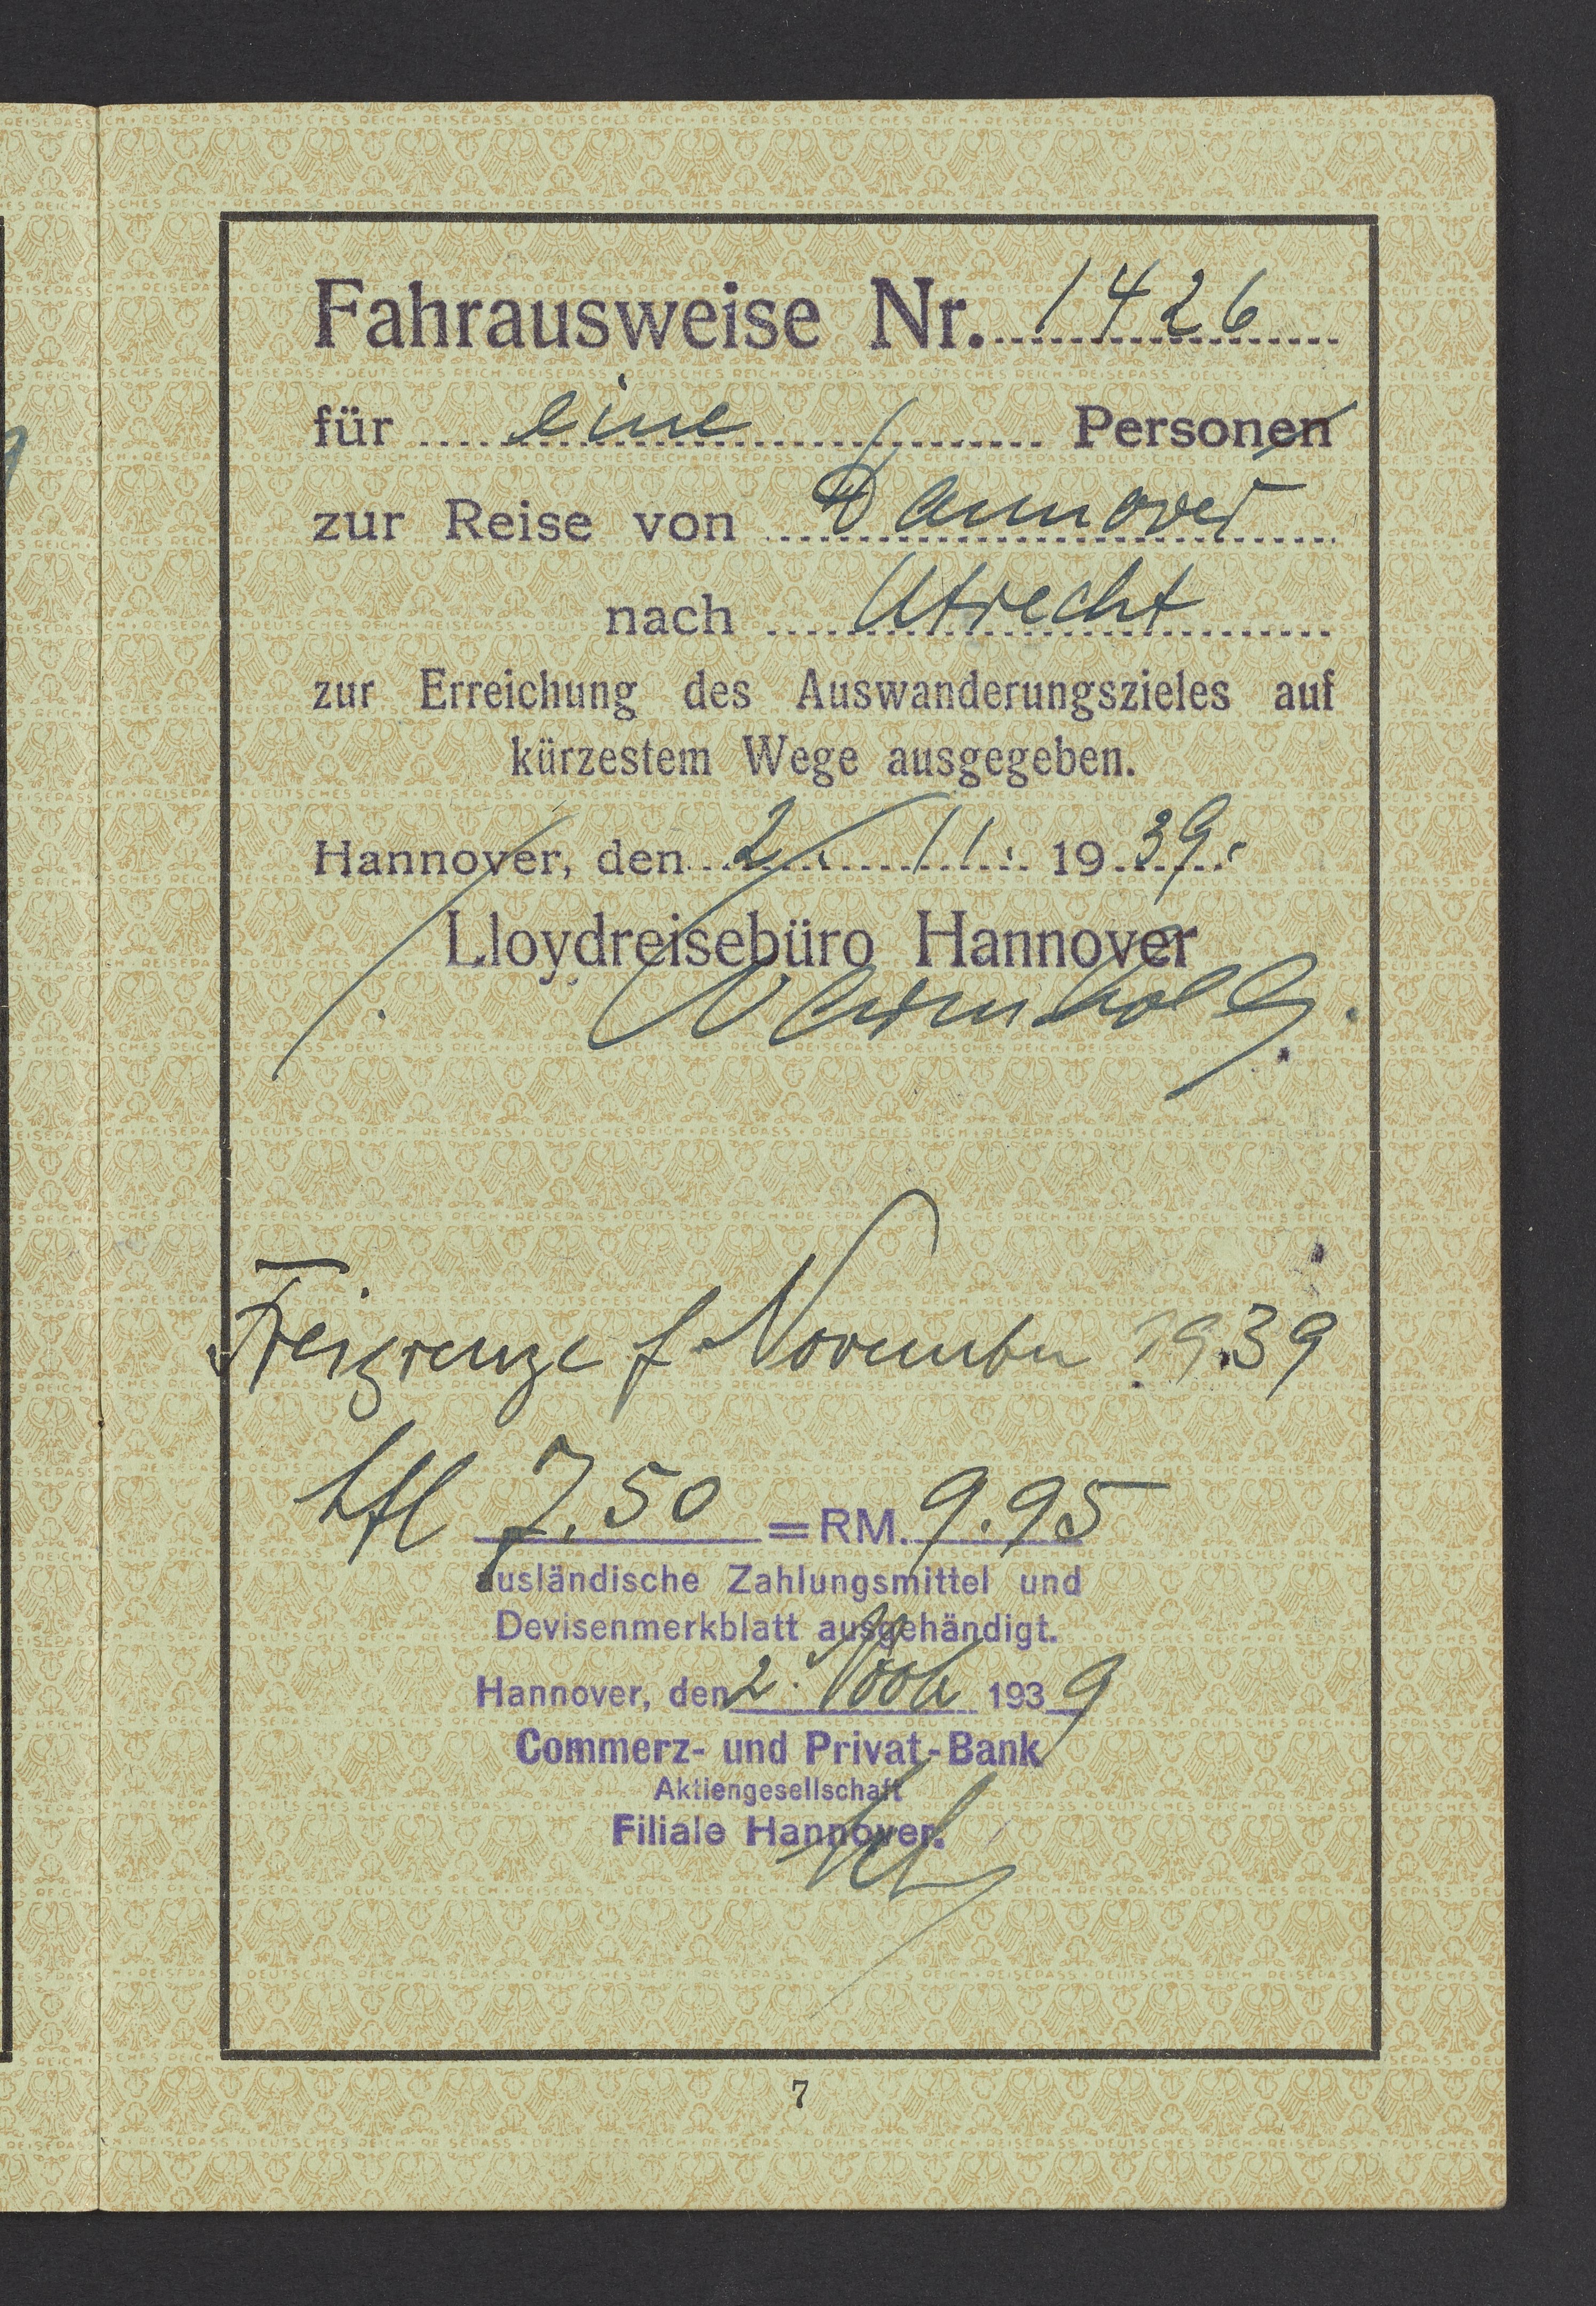 Fahrausweise Nr. 1426
für eine Personen
zur Reise von Hannover
nach Utrecht
zur Erreichung des Auswanderungszieles auf
kürzestem Wege ausgegeben.
Hannover, den 2. 11. 1939.
Lloydreisebüro Hannover
Freigrenze f. November 1939
hfl 7.50 = RM. 9.95
ausländische Zahlungsmittel und
Devisenmerkblatt ausgehändigt.
Hannover, den 2. Novb 1939
Commerz- und Privat-Bank
Aktiengesellschaft
Filiale Hannover.
7